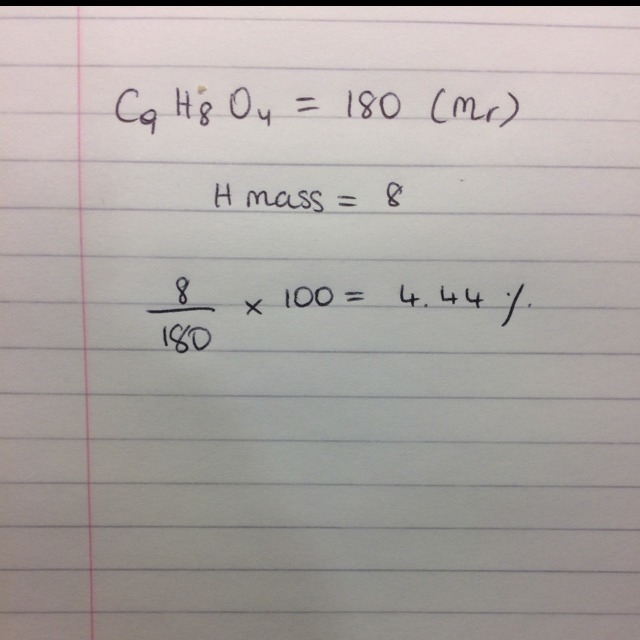 C₉ H₈ O₄ = 180 (Mr)
H mass = 8
8
180
× 100 = 4.44 %